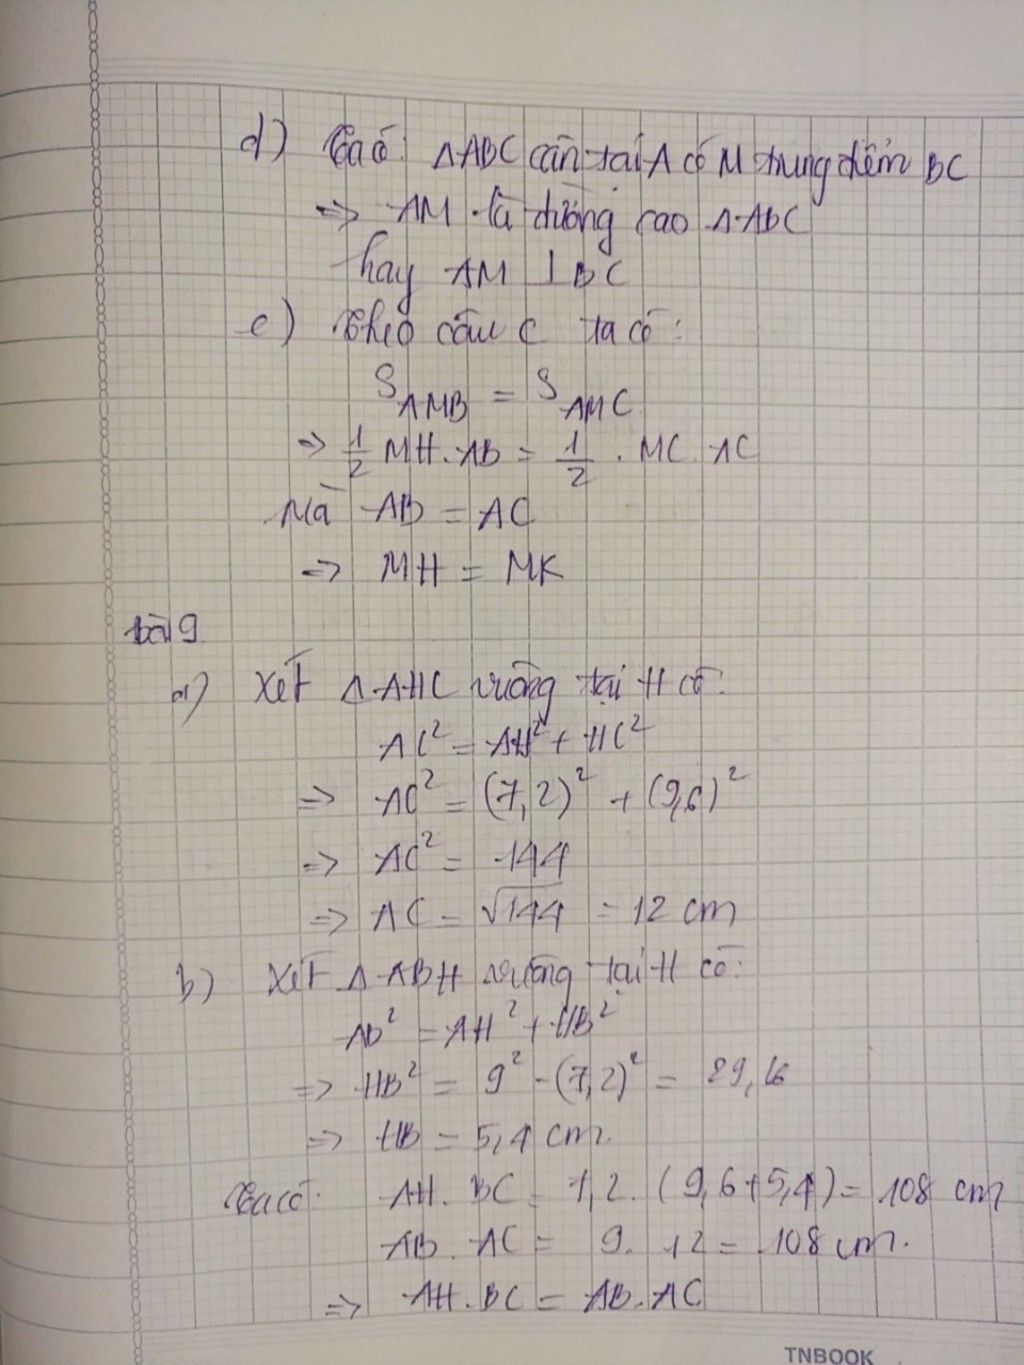 d) Ta có: ΔABC cân tại A có M trung điểm BC
=> AM là đường cao ΔABC
hay AM ⊥ BC
e) Theo câu c ta có:
S_AMB = S_AMC
=> 1/2 MH.AB = 1/2 . MC.AC
Mà AB = AC
=> MH = MK
bài 9
a) Xét ΔAHC vuông tại H có:
AC² = AH² + HC²
=> AC² = (7,2)² + (9,6)²
=> AC² = 144
=> AC = √144 = 12 cm
b) Xét ΔABH vuông tại H có:
AB² = AH² + HB²
=> HB² = 9² - (7,2)² = 29,16
=> HB = 5,4 cm.
Ta có: AH. BC = 7,2. (9,6+5,4) = 108 cm
AB. AC = 9. 12 = 108 cm.
=> AH.BC = AB.AC
TNBOOK